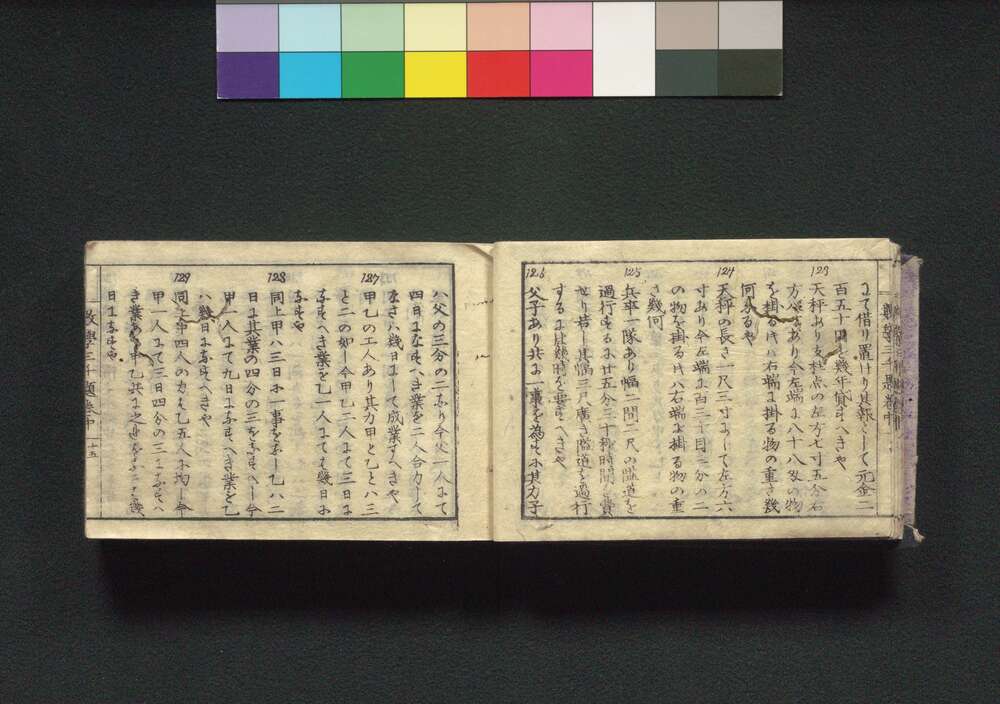 にて借り置けり其報として元金二
百五十円を幾年貸すへきや
123
天秤あり支柱点の左方七寸五分右
方 あり今左端に八十八匁の物
を掛る片八右端に掛る物の重さ幾
何なるや
124
天秤の長さ一尺三寸にして左方六
寸あり今左端に百三十目三分の二
の物を掛る片八右端に掛る物の重
さ幾何
125
兵卒一隊あり幅二間二尺の隘道を
過行するに廿五分三十秒時間を費
せり若し其幅三尺広き隘道を過行
するには幾時を要すへきや
126
父子あり共に一業を為すに其力子
ハ父の三分の二なり今父一人にて
四日になすへき業を二人合力して
なさハ幾日にして成業すへきや
127
甲乙の工人あり其力甲と乙とハ三
と二の如し今甲乙二人にて三日に
なすへき業を乙一人にても幾日に
なすや
128
同上甲ハ三日に一事をなし乙ハ二
日に其業の四分の三をなすへし今
甲一人にて九日になすへき業を乙
ハ幾日になすへきや
129
同上甲四人の力ハ乙五人に均し今
甲一人にて三日四分の三になすへ
き業あり甲乙共に之をなさは幾
日になすや
数学三千題巻中
十五
数学三千題巻中